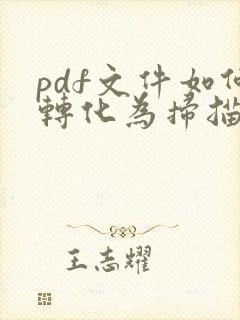 pdf文件如何
轉化為掃描
王志耀